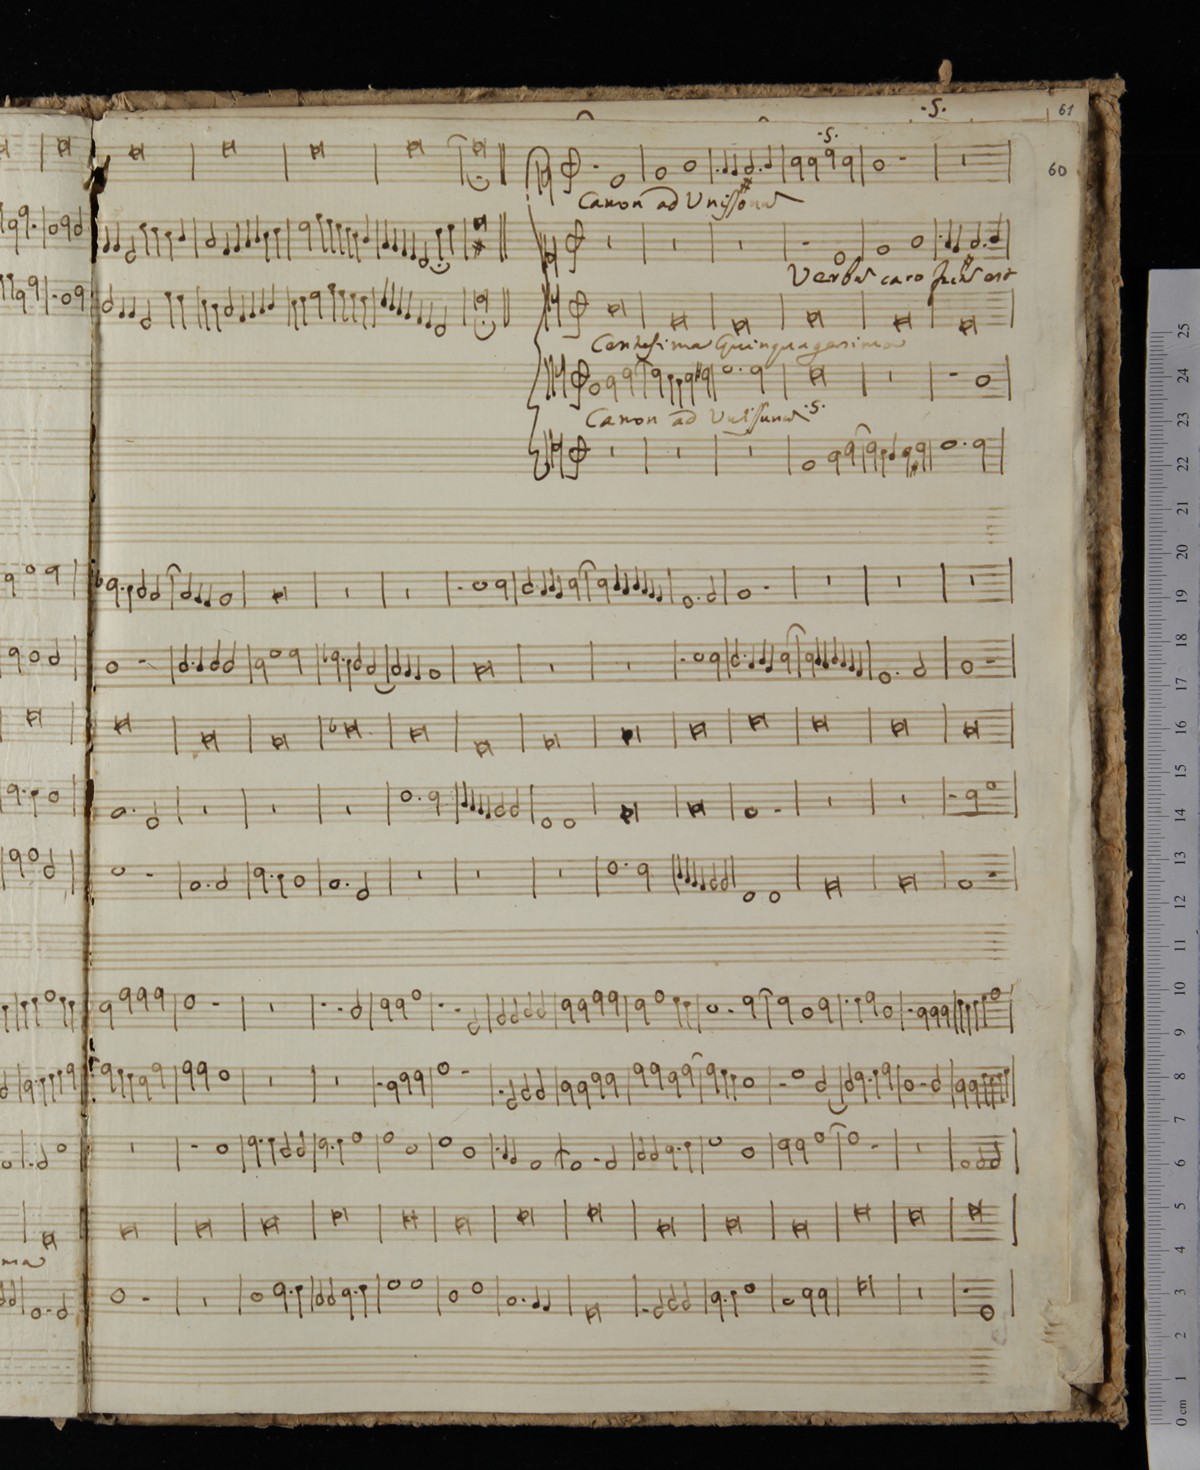 .5.
61
.5.
60
Canon ad Unissonus
Verbus caro factus est
Centesima Quinquagesima
Canon ad Unissunus .5.
ma
25
24
23
22
21
20
19
18
17
16
15
14
13
12
11
10
9
8
7
6
5
4
3
2
1
0 cm